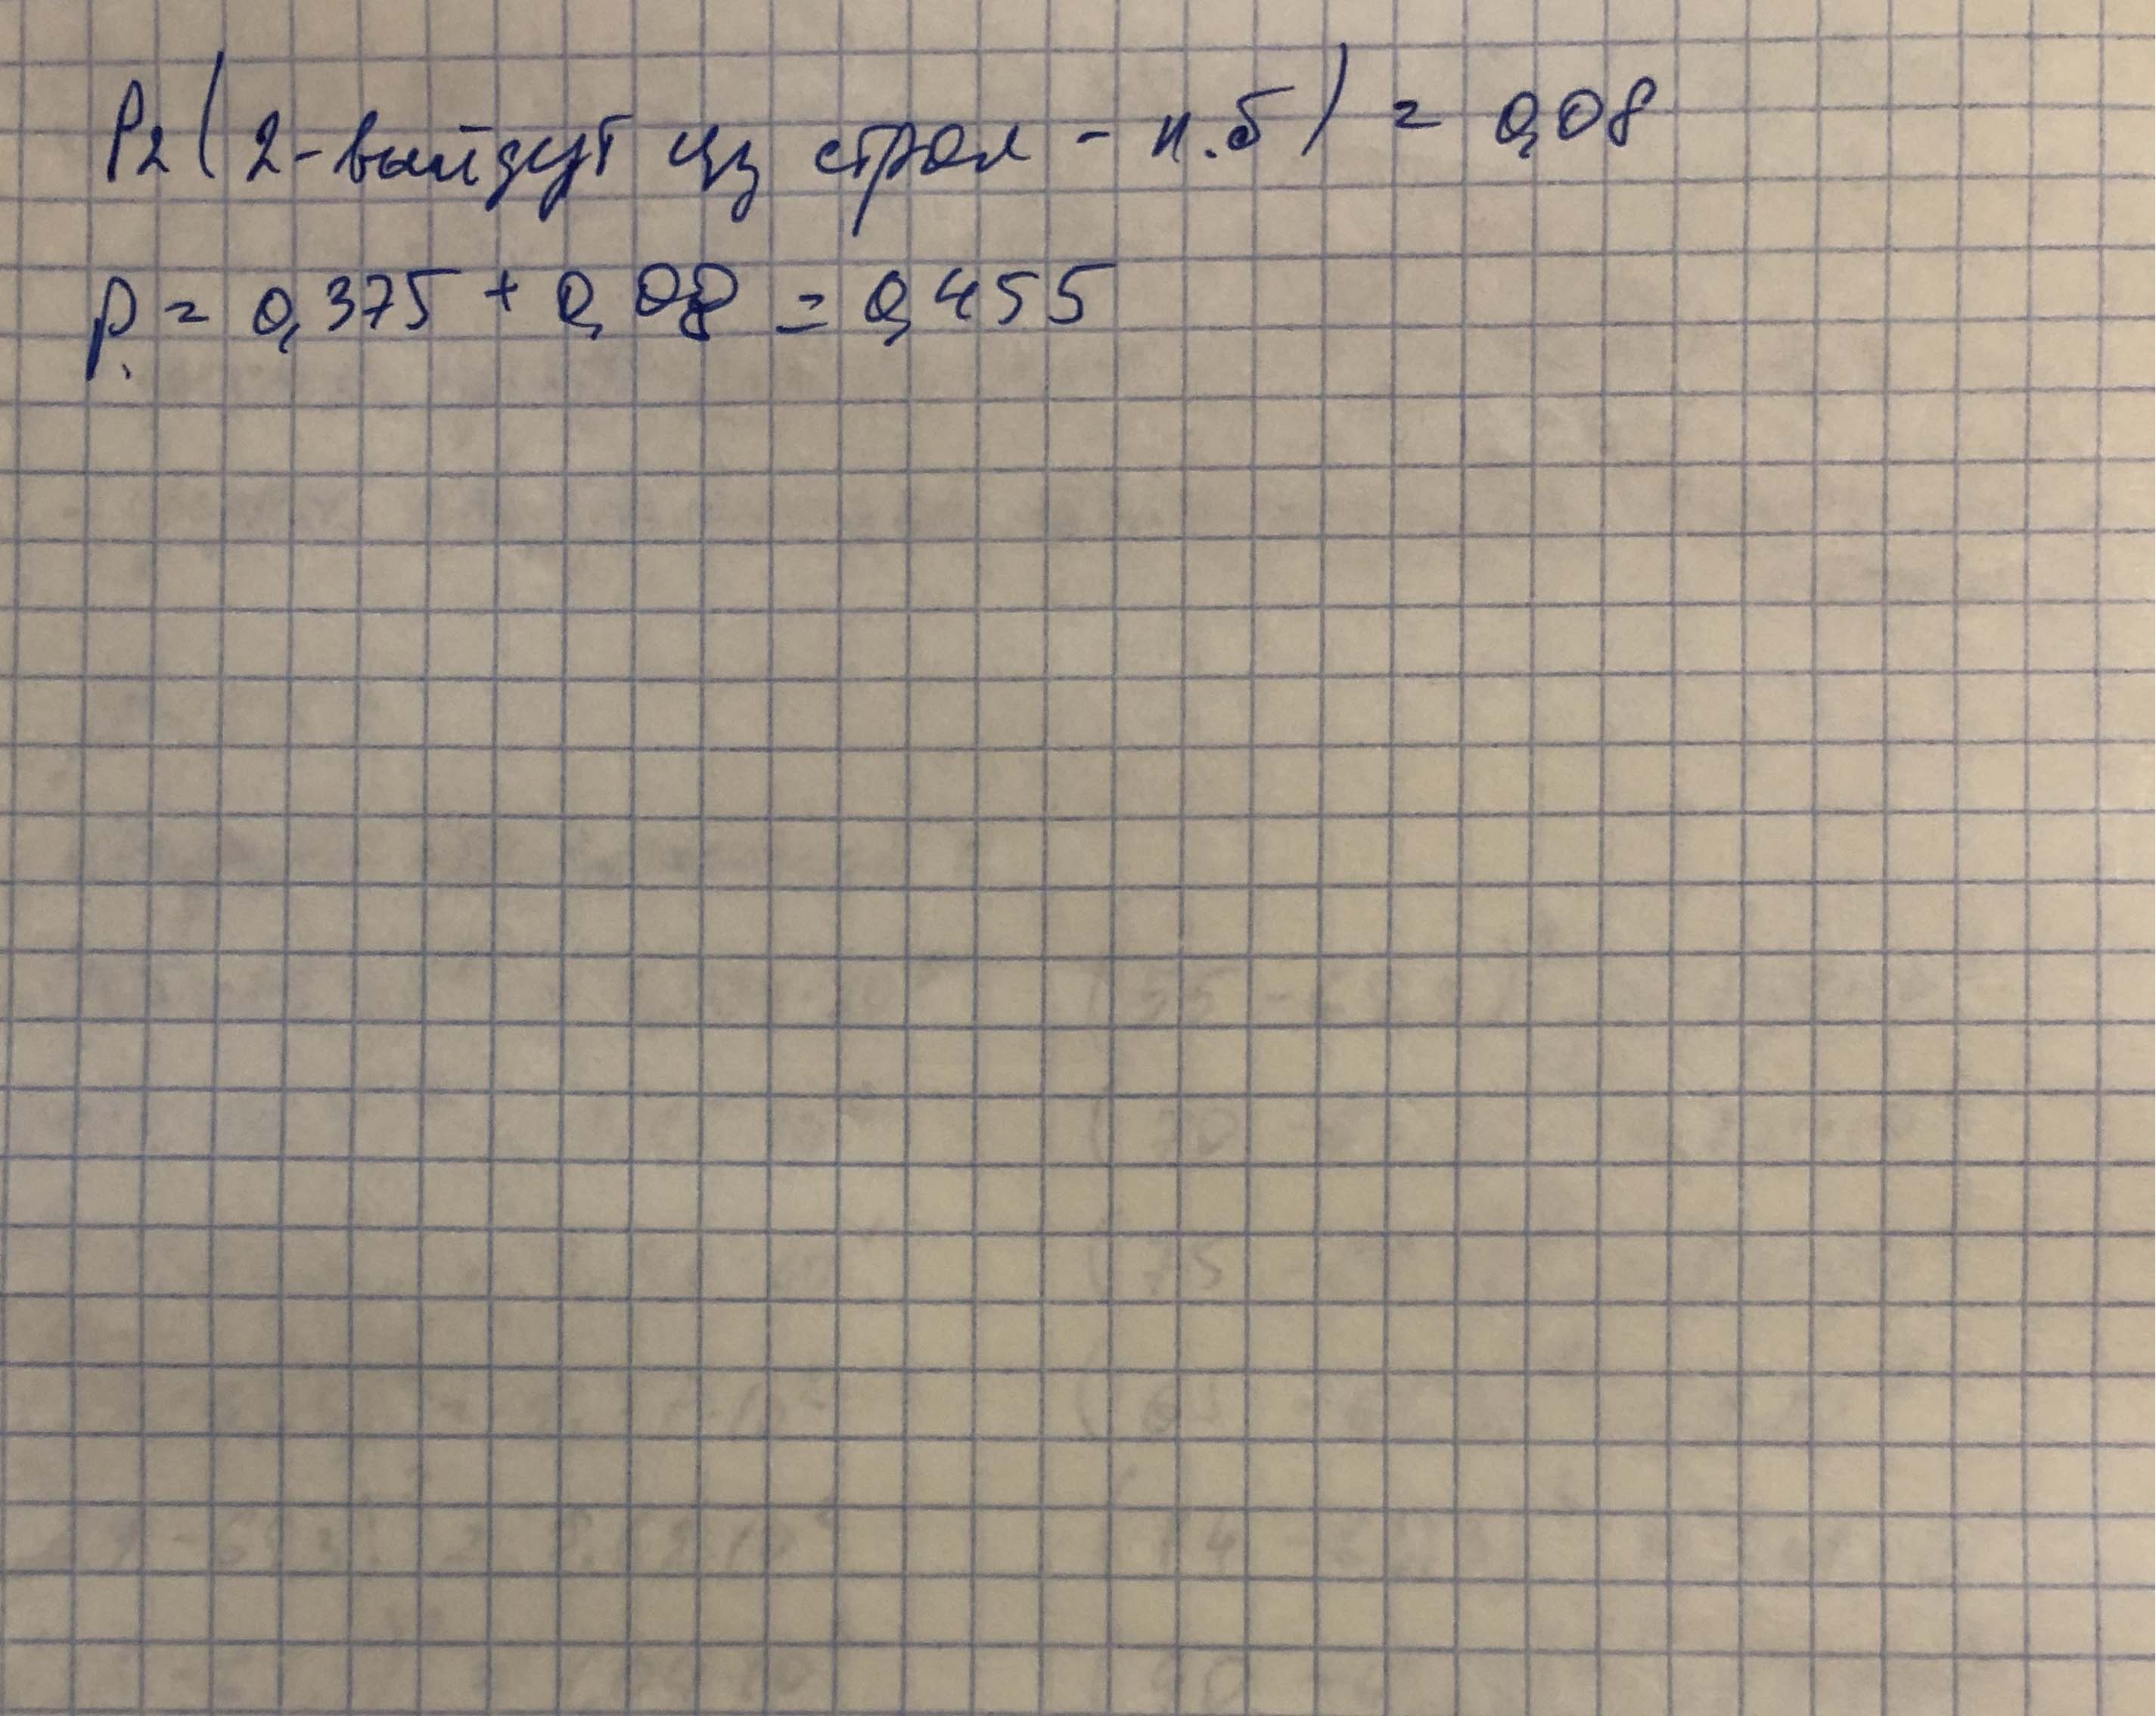 P2 (2-выйдут из строя - н.б) = 0,08
P. = 0,375 + 0,08 = 0,455